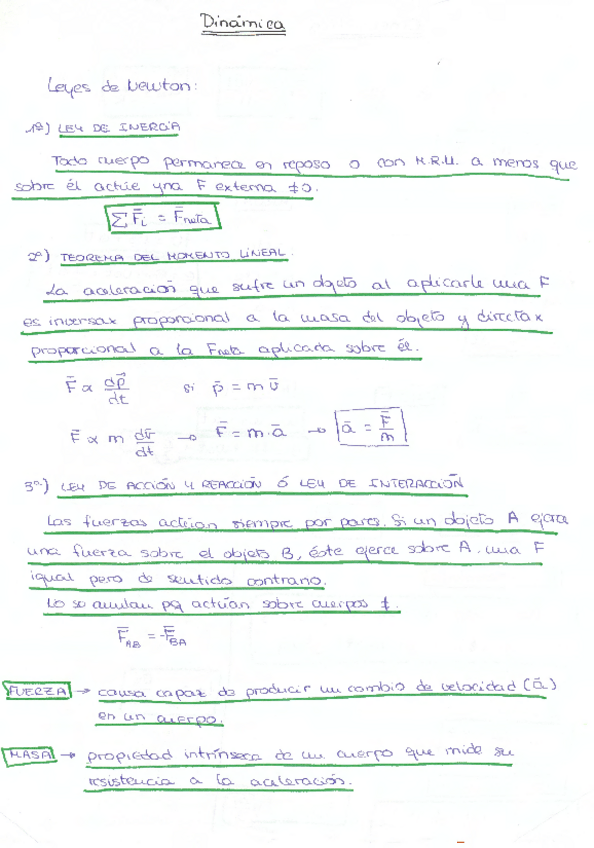 Dinámica
Leyes de Newton:
1º) LEY DE INERCIA
Todo cuerpo permanece en reposo o con M.R.U. a menos que
sobre él actúe una F externa ≠0.
∑F̄i = F̄neta
2º) TEOREMA DEL MOMENTO LINEAL.
La aceleración que sufre un objeto al aplicarle una F
es inversax proporcional a la masa del objeto y directax
proporcional a la Fneta aplicada sobre él.
F̄ ∝ dp⃗/dt si p̄ = m v̄
F̄ ∝ m dv̄/dt → F̄ = m·ā → ā = F̄/m
3º) LEY DE ACCIÓN Y REACCIÓN Ó LEY DE INTERACCIÓN
Las fuerzas actúan siempre por pares. Si un objeto A ejerce
una fuerza sobre el objeto B, éste ejerce sobre A, una F
igual pero de sentido contrario.
No se anulan pq actúan sobre cuerpos ≠.
F̄AB = -F̄BA
FUERZA → causa capaz de producir un cambio de velocidad (ā)
en un cuerpo.
MASA → propiedad intrínseca de un cuerpo que mide su
resistencia a la aceleración.